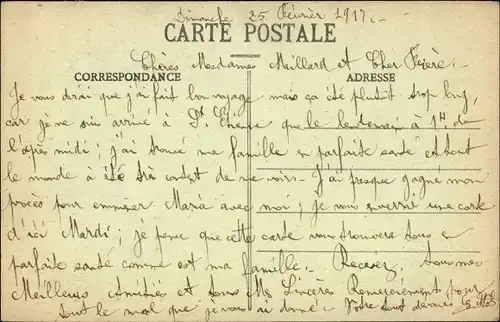 Dimanche 25 Février 1917.
CARTE POSTALE
Chères Madames Maillard et Cher Frère;
CORRESPONDANCE
ADRESSE
Je vous dirai que j'ai fait bon voyage mais ça été plutôt trop long,
car je ne sui arrivé à St Etienne que le lendemain à 1H. de
l'après midi; j'ai trouvé ma famille en parfaite santé et tout
le monde à été très content de me voir. J'ai presque gagné mon
procès pour emmener Maria avec moi; je vous enverrai une carte
d'ici Mardi; je pense que cette carte vous trouvera tous en
parfaite santé comme est ma famille. Recevez, tous mes
Meilleurs Amitiés et tous Mes Sincères Remerciement pour
tout le mal que je vous ai donné. Votre tout dévoué